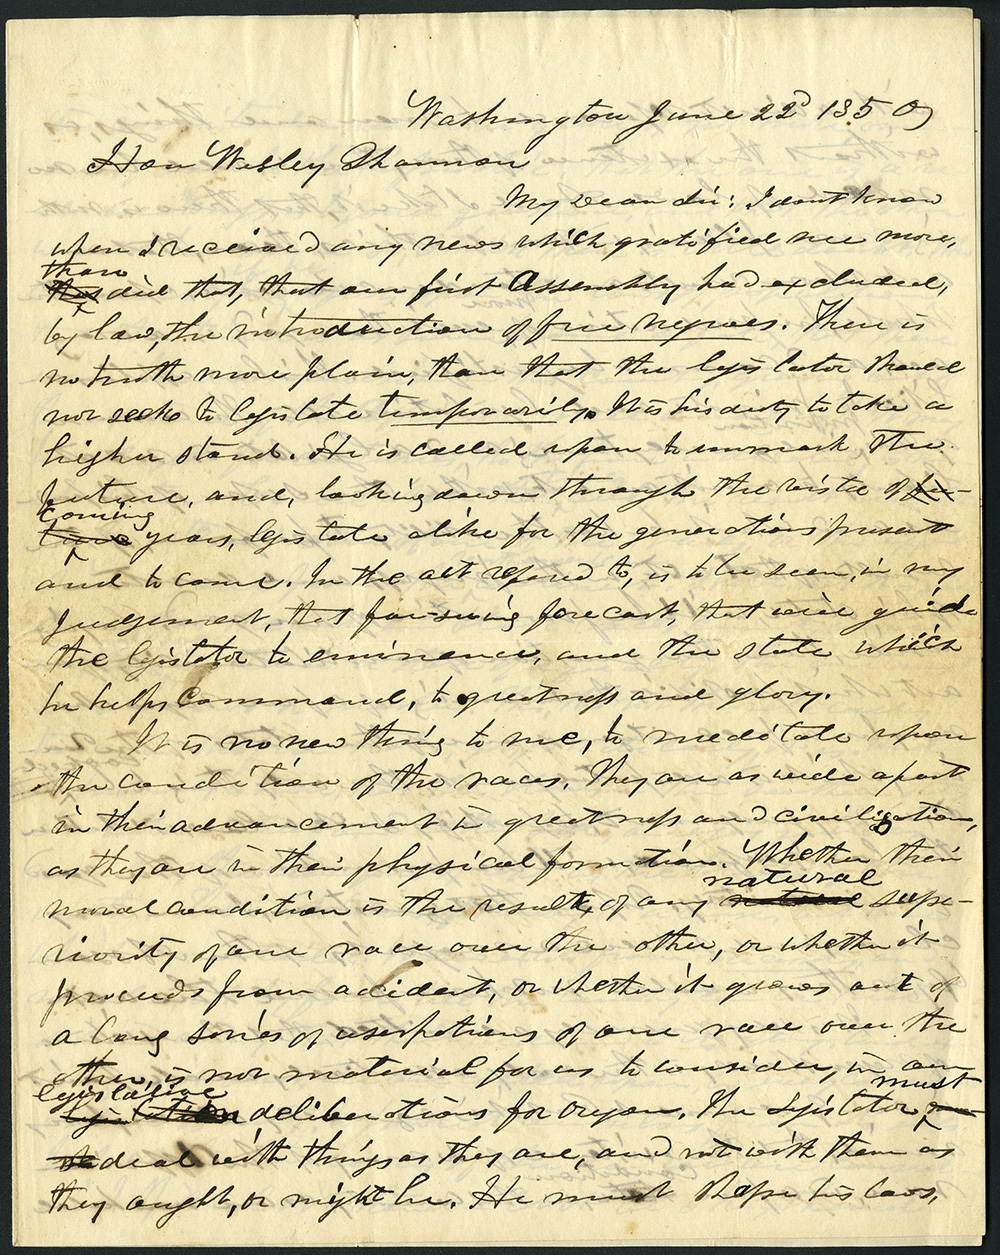 Washington June 22d 1850
Hon Wesley Shannon
My Dear Sir: I don't know
when I received any news which gratified me more,
than
this did that, that our first Assembly had excluded,
by law, the introduction of free negroes. There is
no truth more plain, than that the legislator should
not seek to legislate temporarily. It is his duty to take a
higher stand. He is called upon to unmask the
future, and, looking down through the vista of
coming
time years, legislate alike for the generations present
and to come. In the act refered to, is to be seen, in my
judgement, that far-seeing forecast, that will guide
the legislator to eminence, and the state which
he helps command, to greatness and glory.
It is no new thing to me, to meditate upon
the condition of the races. They are as wide apart
in their advancement in greatness and civilization,
as they are in their physical formation. Whether their
natural
moral condition is the result, of any natural supe-
riority of one race over the other, or whether it
proceeds from accident, or whether it grows out of
a long series of usurpations of one race over the
other, is not material for us to consider, in our
legislative must
legislation deliberations for Oregon. The legislator
deal with things as they are, and not with them as
they ought, or might be. He must shape his laws,